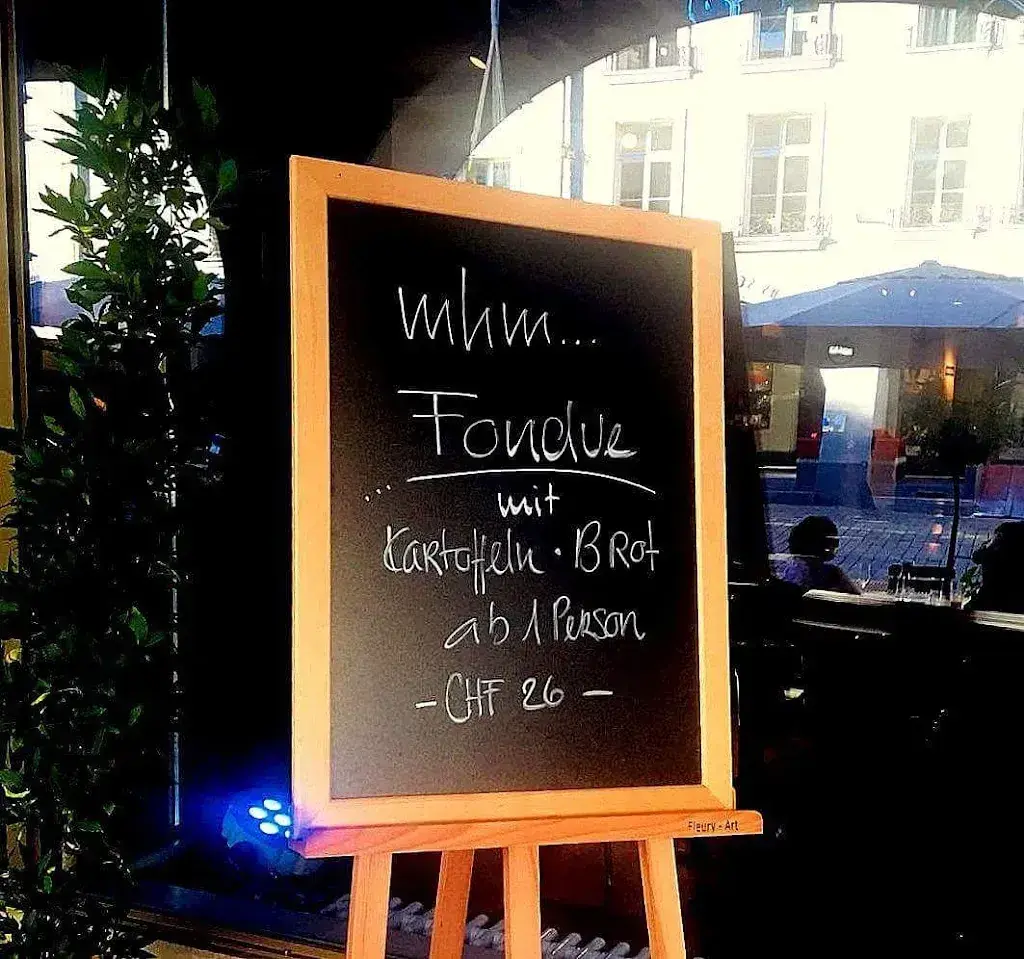 mhm...
Fondue
... mit
Kartoffeln · Brot
ab 1 Person
- CHF 26 -
Fleury - Art